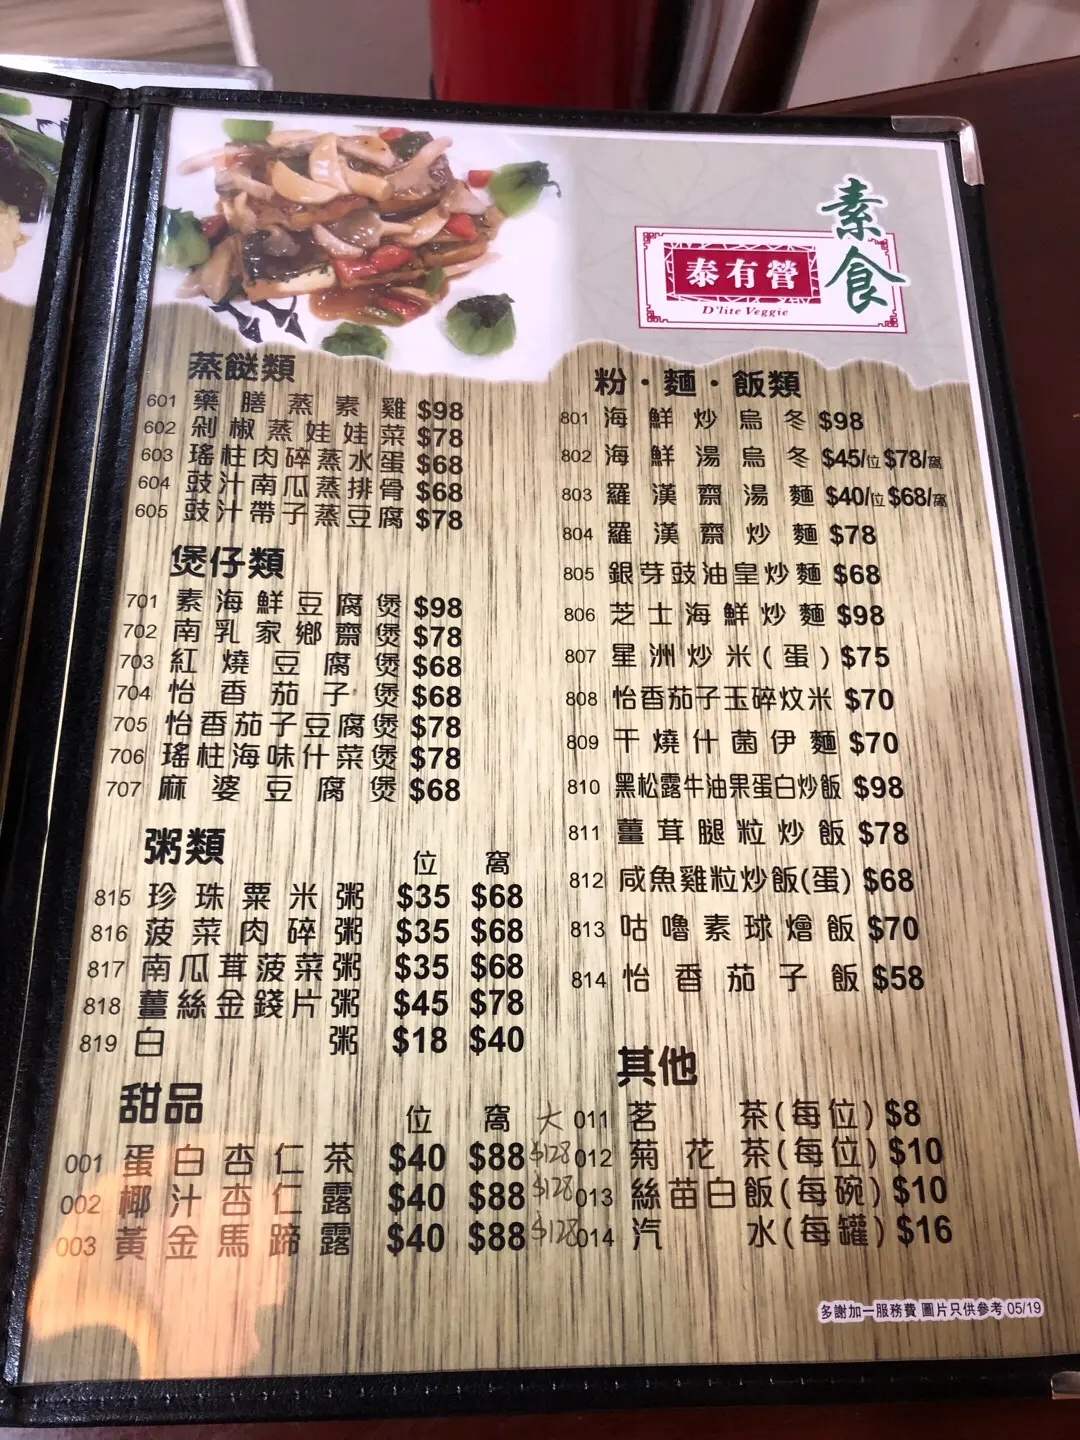 素食
泰有營
D'lite Veggie
蒸餸類
601 藥膳蒸素雞 $98
602 剁椒蒸娃娃菜 $78
603 瑤柱肉碎蒸水蛋 $68
604 豉汁南瓜蒸排骨 $68
605 豉汁帶子蒸豆腐 $78
煲仔類
701 素海鮮豆腐煲 $98
702 南乳家鄉齋煲 $78
703 紅燒豆腐煲 $68
704 怡香茄子煲 $68
705 怡香茄子豆腐煲 $78
706 瑤柱海味什菜煲 $78
707 麻婆豆腐煲 $68
粥類
位 窩
815 珍珠粟米粥 $35 $68
816 菠菜肉碎粥 $35 $68
817 南瓜茸菠菜粥 $35 $68
818 薑絲金錢片粥 $45 $78
819 白粥 $18 $40
甜品
位 窩 大
001 蛋白杏仁茶 $40 $88 $128
002 椰汁杏仁露 $40 $88 $128
003 黃金馬蹄露 $40 $88 $128
粉・麵・飯類
801 海鮮炒烏冬 $98
802 海鮮湯烏冬 $45/位 $78/窩
803 羅漢齋湯麵 $40/位 $68/窩
804 羅漢齋炒麵 $78
805 銀芽豉油皇炒麵 $68
806 芝士海鮮炒麵 $98
807 星洲炒米(蛋) $75
808 怡香茄子玉碎炆米 $70
809 干燒什菌伊麵 $70
810 黑松露牛油果蛋白炒飯 $98
811 薑茸腿粒炒飯 $78
812 咸魚雞粒炒飯(蛋) $68
813 咕嚕素球燴飯 $70
814 怡香茄子飯 $58
其他
011 茗茶(每位) $8
012 菊花茶(每位) $10
013 絲苗白飯(每碗) $10
014 汽水(每罐) $16
多謝加一服務費 圖片只供參考 05/19